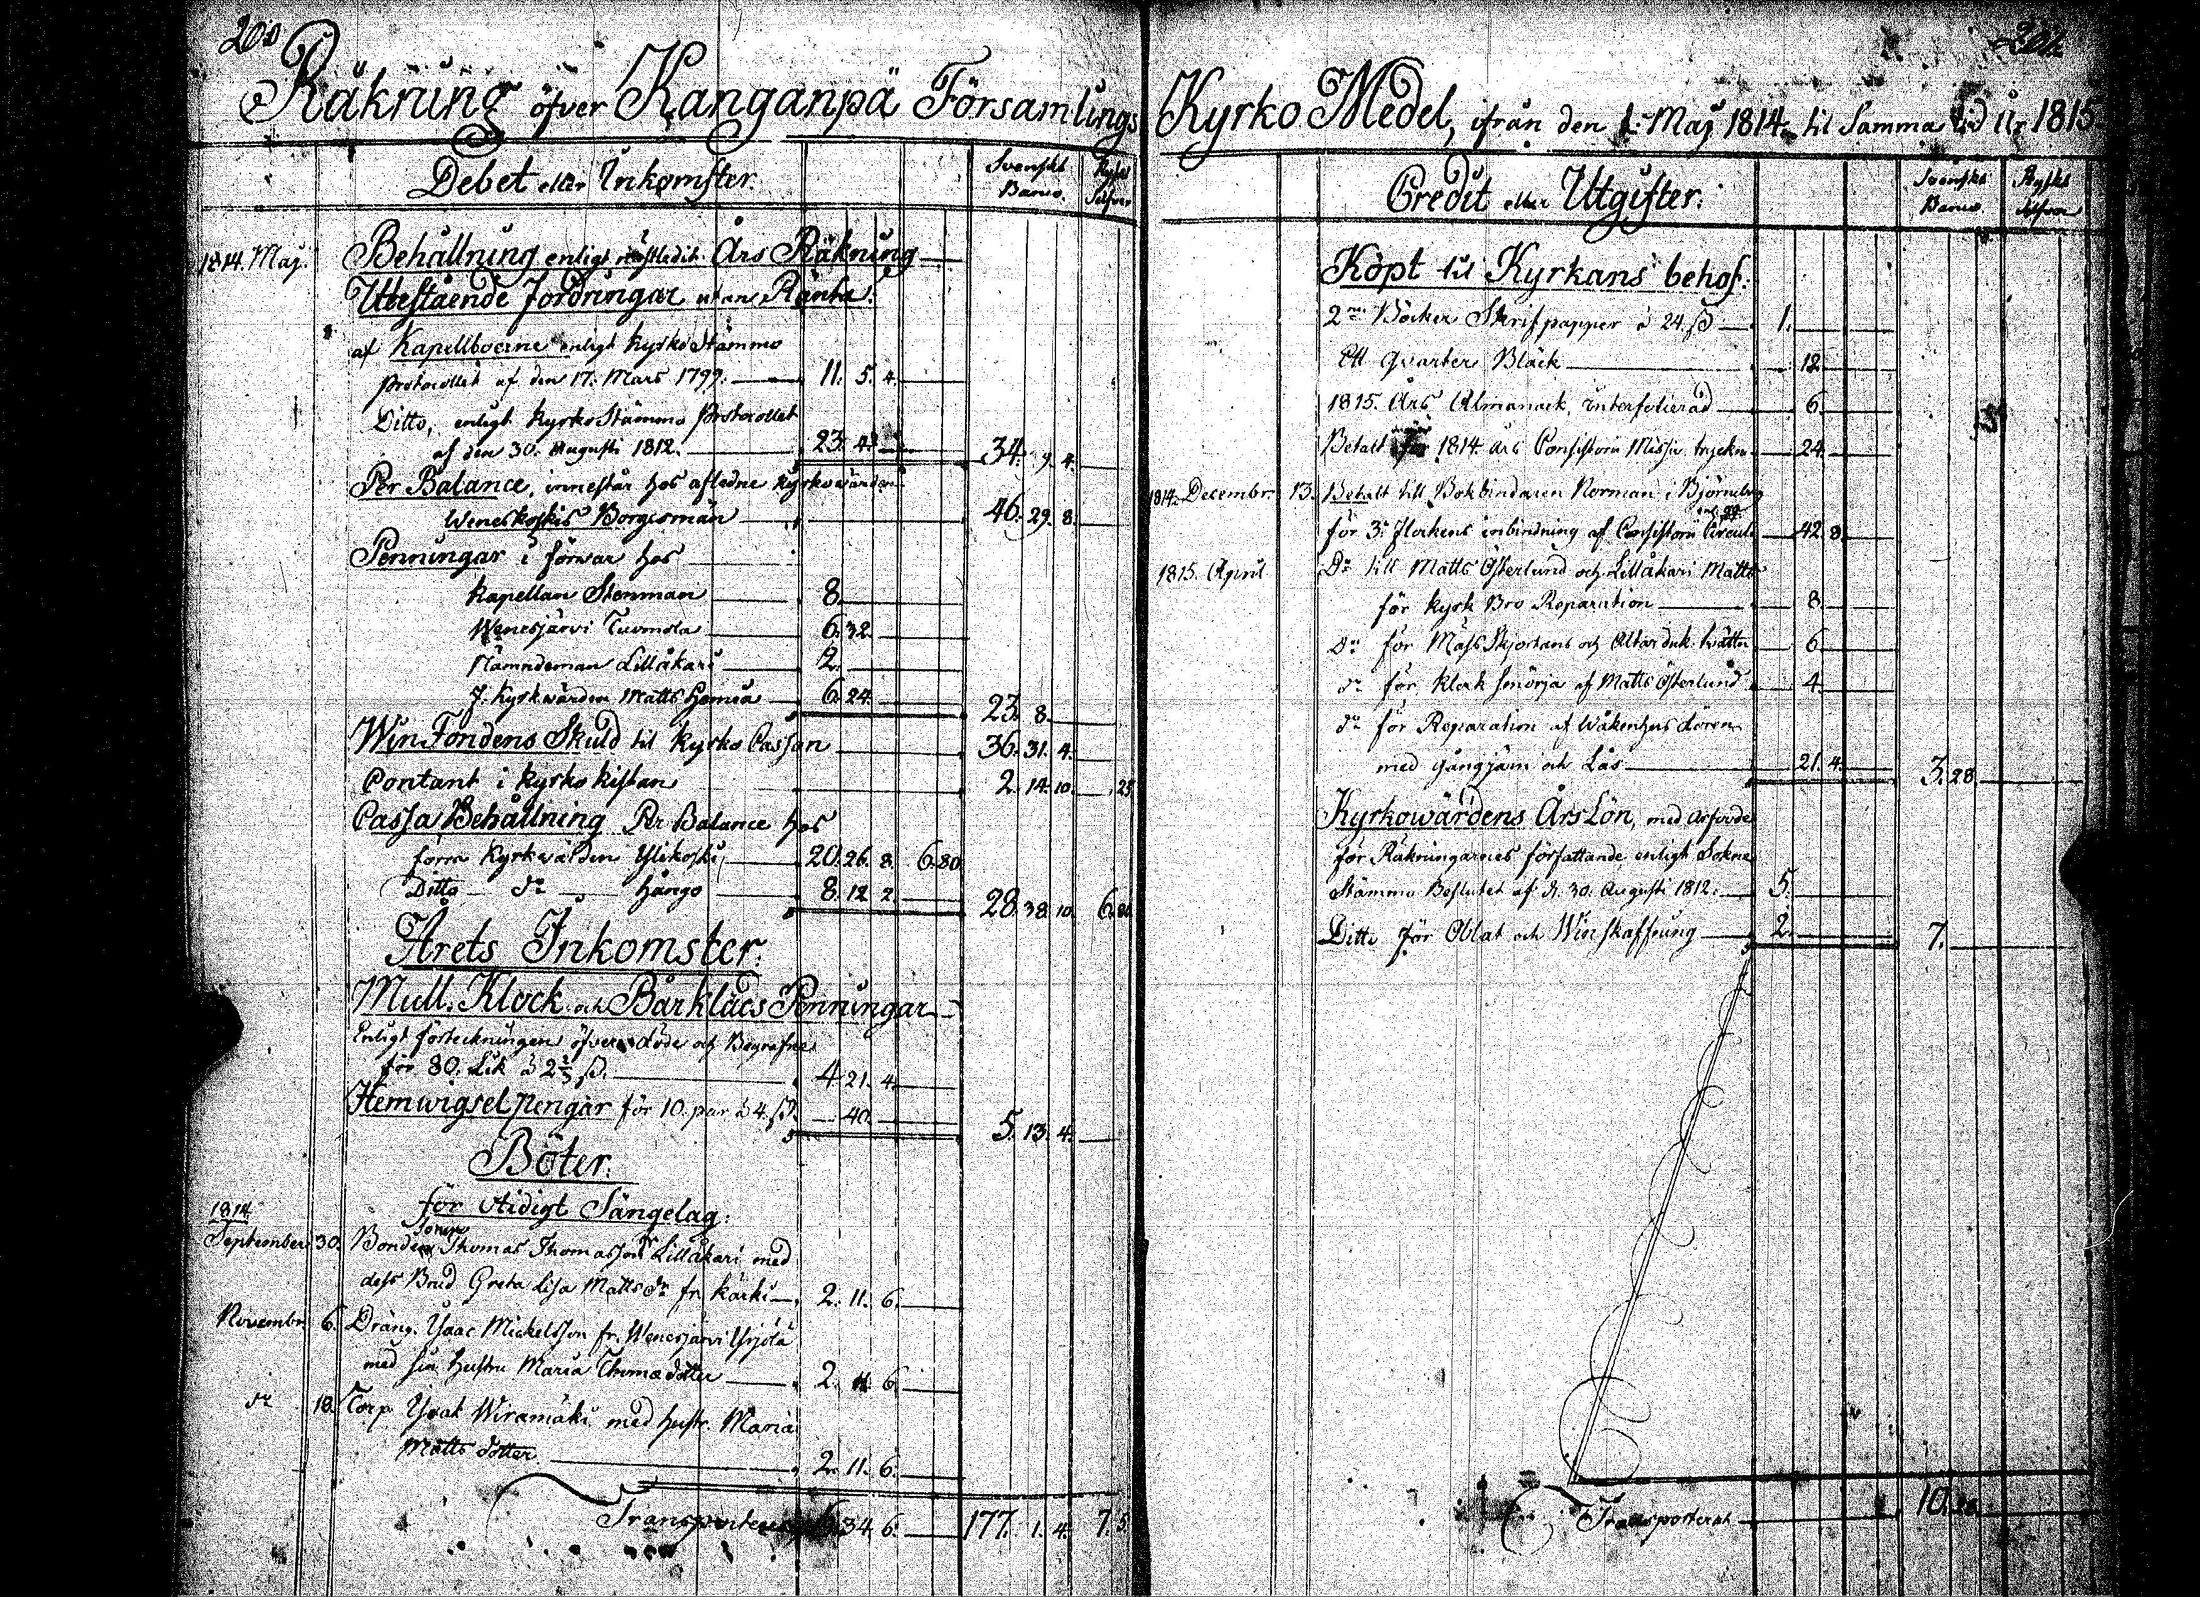 200
Räkning öfver Kanganpä Församlings
Debet eller Inkomster.
Svenskt Banco.
Ryskt Silfver
1814. Maj. Behållning enligt nästledit. Års Räkning
Utestående Fordringar utan Ränta.
af Kapellboerne enligt KyrkoStämmo
protocollet af den 17. Mars 1799. 11. 5. 4.
Ditto, enligt KyrkoStämmo Protocollet
af den 30. Augusti 1812. 23. 4. 34. 9. 4.
Per Balance, innestår hos afledne Kyrkowärden
Weneskoskis Borgesmän 46. 29. 8.
Penningar i förwar hos
Kapellan Stenman 8.
Wenesjärvi Tuomola 6. 32.
Nämndeman Lillåkari 2.
f. Kyrkwärden Matts 6. 24. 23. 8.
WinFondens Skuld til Kyrko Cassan 36. 31. 4.
Contant i Kyrko kistan 2. 14. 10. 25
Cassa Behållning Per Balance hos
förra Kyrkwärden Ylikoski 20. 26. 8. 6. 80
Ditto do Hångo 8. 12. 2. 28. 38. 10. 6. 80
Årets Inkomster.
Mull. Klock och Bårklädes Penningar
Enligt förteckningen öfver döde och Begrafne
för 80. Lik à 2 2/3 ß. 4 21. 4.
Hemwigsel pengar för 10. par à 4. ß. 40. 5. 13. 4.
Böter.
för otidigt Sängelag.
1814
September 30. Bonde Sonen Thomas Thomasson Lillåkari med
dess Brud Greta Lisa Mattsdr fr. Karki 2. 11. 6.
Novembr. 6. Dräng. Ysaac Mickelsson fr. Wenesjärvi Yrjölä
med sin Hustru Maria Thomædotter 2. 11. 6.
do 18. Torp. Ysak Wiramäki med hustr. Maria
Matts dotter 2. 11. 6.
Transporteras 6. 34. 6. 177. 1. 4. 7. 5.
201
Kyrko Medel, ifrån den 1. Maj 1814 til Samma tid år 1815
Credit eller Utgifter.
Svenskt Banco.
Ryskt Silfver
Köpt til Kyrkans behof.
2ne Böcker Skrifpapper à 24. ß 1.
Ett Qvarter Bläck 12
1815. Års Almanack, interfolierad 6.
Betalt för 1814. års Consistorii Missiv tryckn. 24.
1814. Decembr. 13. Betalt till Bokbindaren Norman i Björneborg
för 3. flockens inbindning af Consistorii Circul. 42. 8
1815. April Do till Matts Österlund och Lillåkari Matts
för Kyrk Bro Reparation 8.
Do för MässSkjortans och Altarduk. twätta 6.
do för klock smörja af Matts Österlund 4.
do för Reparation af Wåkenhus dören
med gångjärn och Lås 21. 4. 3. 28.
Kyrkowärdens ÅrsLön, med Arfvode
för Räkningarnes författande enligt Sokne
Stämmo Beslutet af d. 30. Augusti 1812. 5.
Ditto för Oblat och Win skaffning 2. 7.
Transporterat 10. 28.